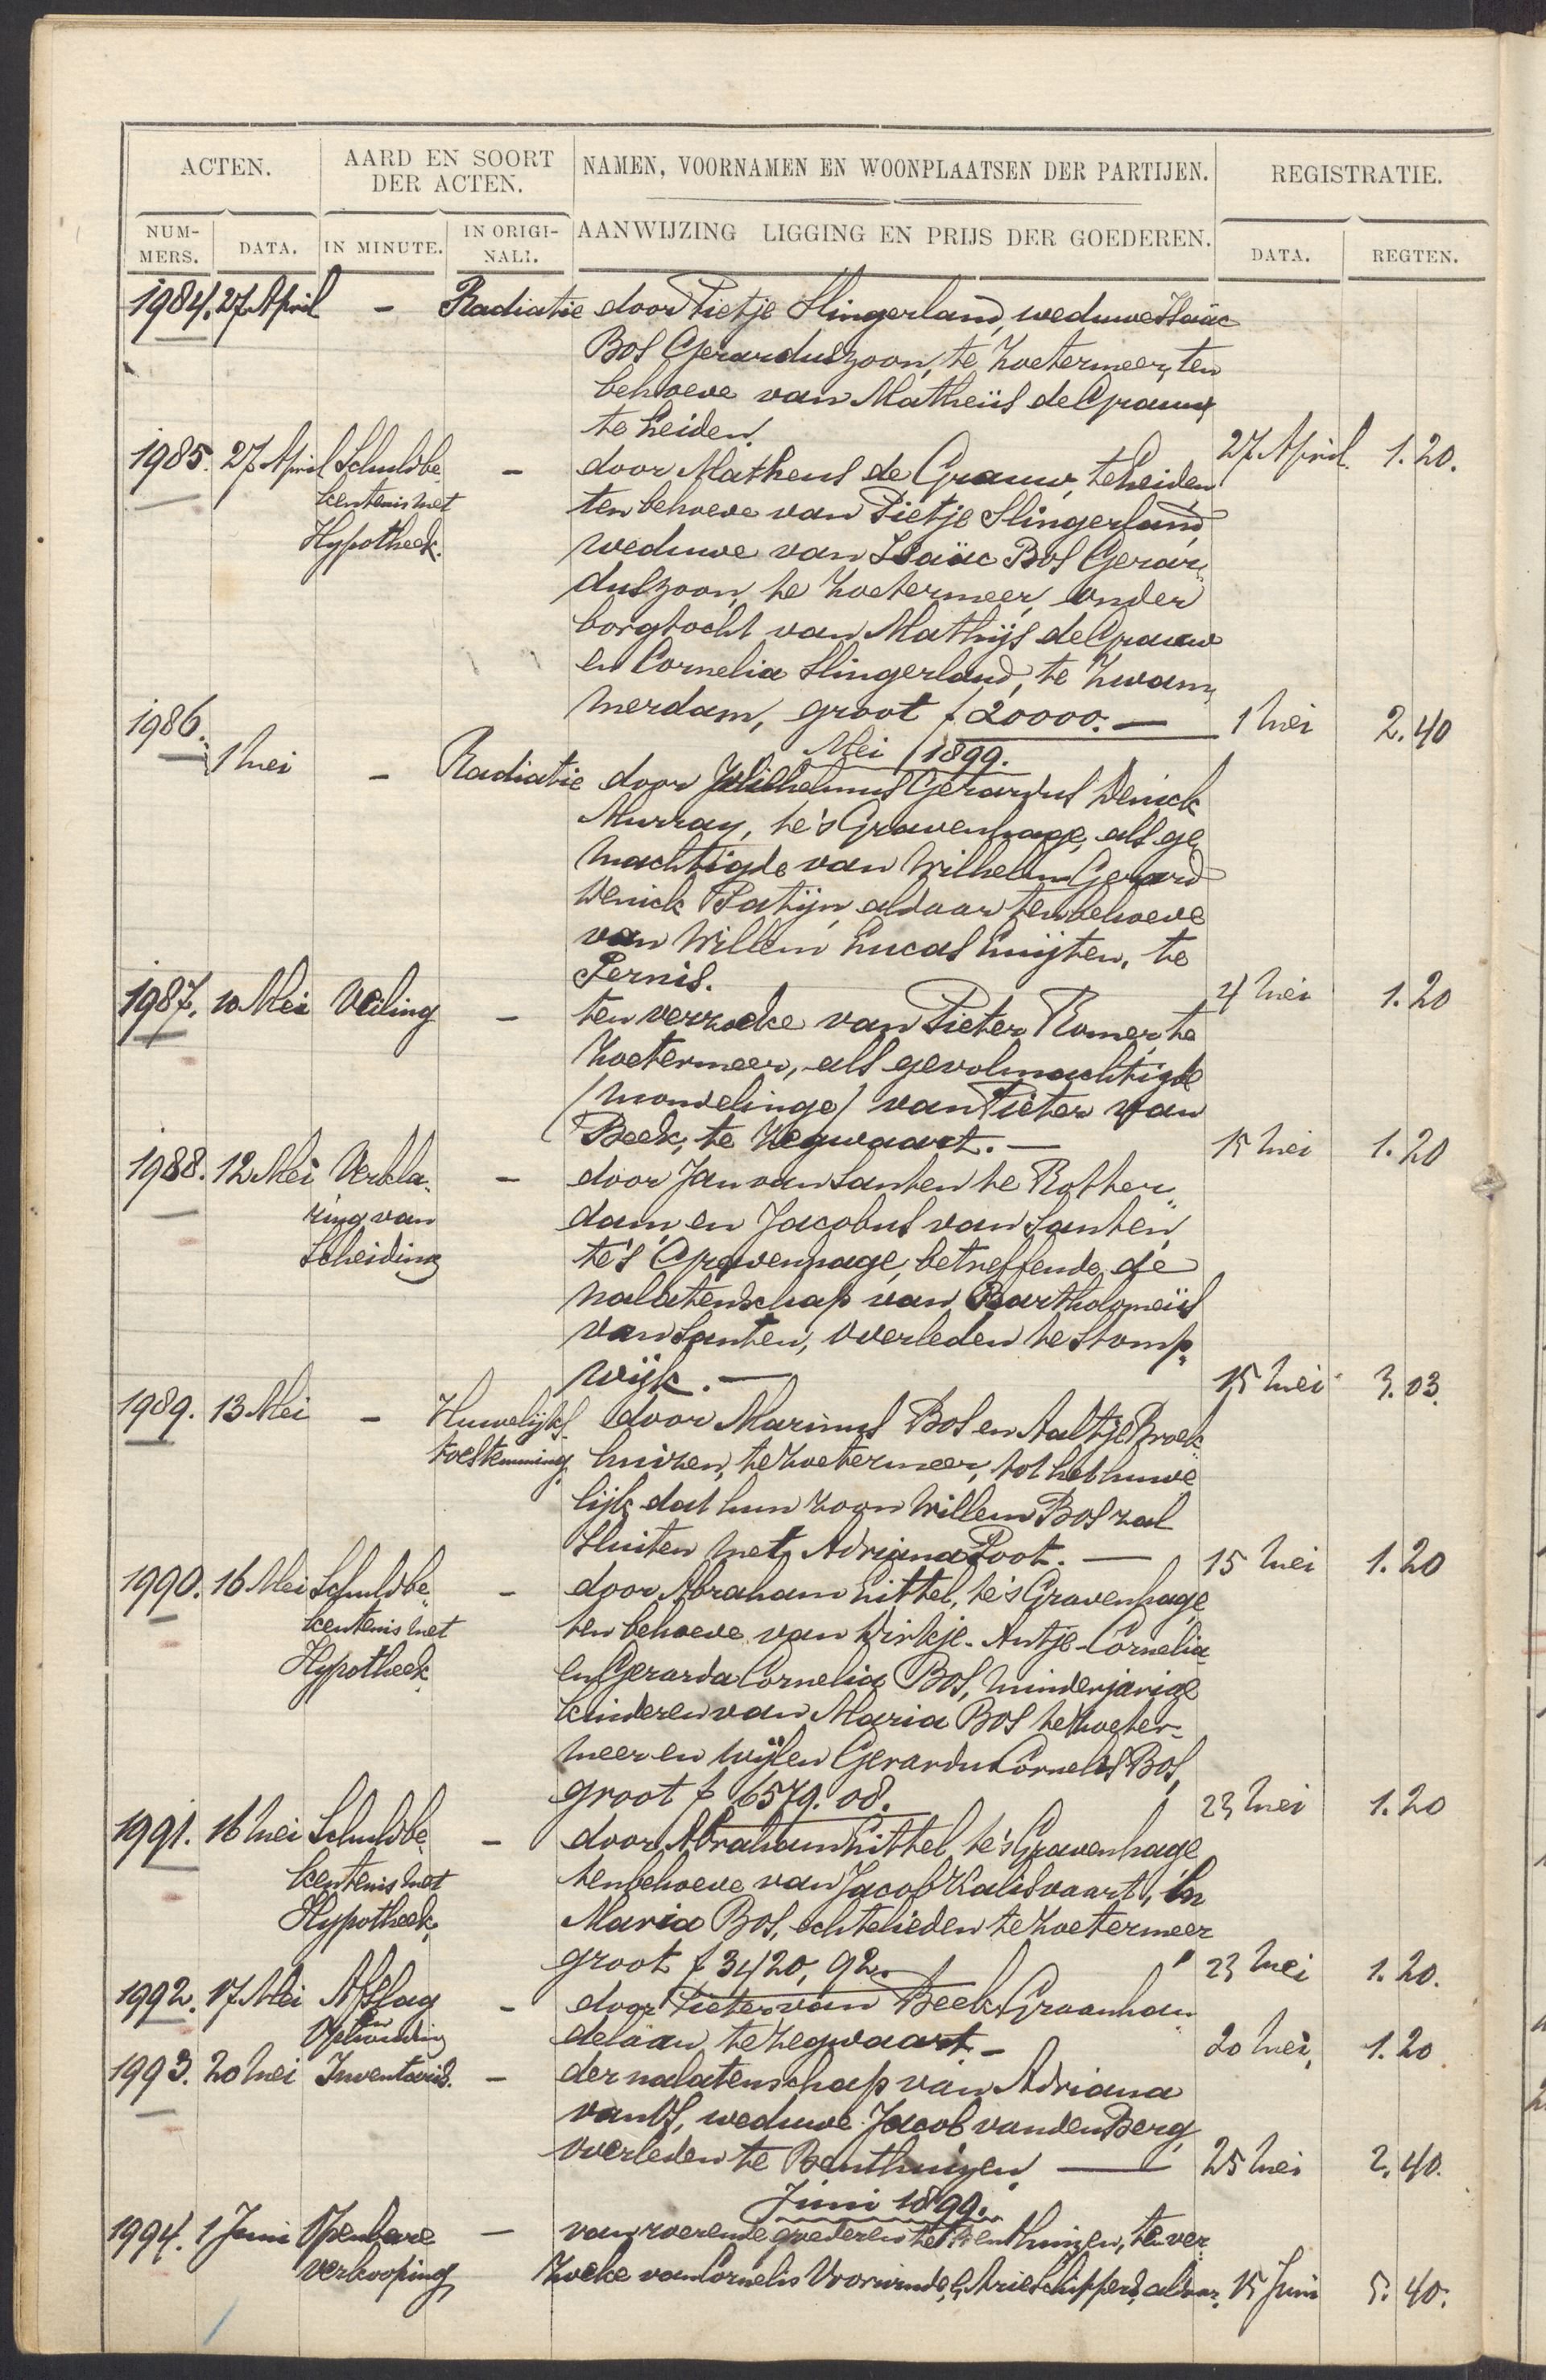 ACTEN.
AARD EN SOORT
DER ACTEN.
NAMEN, VOORNAMEN EN WOONPLAATSEN DER PARTIJEN.
REGISTRATIE.
NUM-
MERS.
DATA.
IN MINUTE.
IN ORIGI-
NALI.
AANWIJZING LIGGING EN PRIJS DER GOEDEREN.
DATA.
REGTEN.
1984. 27 April - Radiatie door Pietje Slingerland, weduwe Isaäc
Bos Gerarduszoon, te Zoetermeer, ten
behoeve van Matheüs de Grauw,
te Leiden. 27 April. 1.20.
1985. 27 April Schuldbe - door Matheus de Grauw, te Leiden
kentenis met ten behoeve van Pietje Slingerland
Hypotheek. weduwe van Isaäc Bos Gerar„
duszoon, te Zoetermeer, onder
borgtocht van Mathijs de Grauw
en Cornelia Slingerland, te Zwam„
merdam, groot f 20000.— 1 Mei 2.40
Mei 1899.
1986. 1 Mei - Radiatie door Wilhelmus Gerardus Denick
Murray, te 's Gravenhage, als ge„
machtigde van Wilhelm Gerard
Denick Patijn, aldaar ten behoeve
van Willem Lucas Luijten, te
Pernis. 4 Mei 1.20
1987. 10 Mei Veiling - ten verzoeke van Pieter Romer, te
Zoetermeer, als gevolmachtigde
(mondelinge) van Pieter van
Beek, te Zegwaart.— 15 Mei 1.20
1988. 12 Mei Verkla„ - door Jan van Santen te Rotter„
ring van dam, en Jacobus van Santen,
Scheiding te 's Gravenhage, betreffende de
nalatenschap van Bartholomeüs
van Santen, overleden te Stomp„
wijk.— 15 Mei 3.03.
1989. 13 Mei - Huwelijks- door Marinus Bos en Aaltje Broek„
toestemming huizen, te Zoetermeer, tot het huwe
lijk dat hun zoon Willem Bos zal
sluiten met Adriana Poot.— 15 Mei 1.20
1990. 16 Mei Schuldbe„ - door Abraham Littel, te 's Gravenhage,
kentenis met ten behoeve van Dirkje-Antje-Cornelia
Hypotheek. en Gerarda Cornelia Bos, minderjarige
kinderen van Maria Bos te Zoeter-
meer en wijlen Gerardus Cornelis Bos,
groot f 6579.08. 23 Mei 1.20
1991. 16 Mei Schuldbe - door Abraham Littel te 's Gravenhage
kentenis met ten behoeve van Jacob Kalisvaart, en
Hypotheek. Maria Bos, echtelieden te Zoetermeer
groot f 3420,92. 23 Mei 1.20.
1992. 17 Mei Afslag - door Pieter van Beek, Graanhan„
en
Ophouding delaar, te Zegwaart.- 20 Mei, 1.20
1993. 20 Mei Inventaris. - der nalatenschap van Adriana
van Os, weduwe Jacob van den Berg,
overleden te Benthuizen — 25 Mei 2.40.
Juni 1899.
1994. 1 Juni Openbare - van roerende goederen te Benthuizen, ten ver„
verkooping zoeke van Cornelis Voorwinde, & Arie Schippers, aldaar. 15 Juni 5.40.